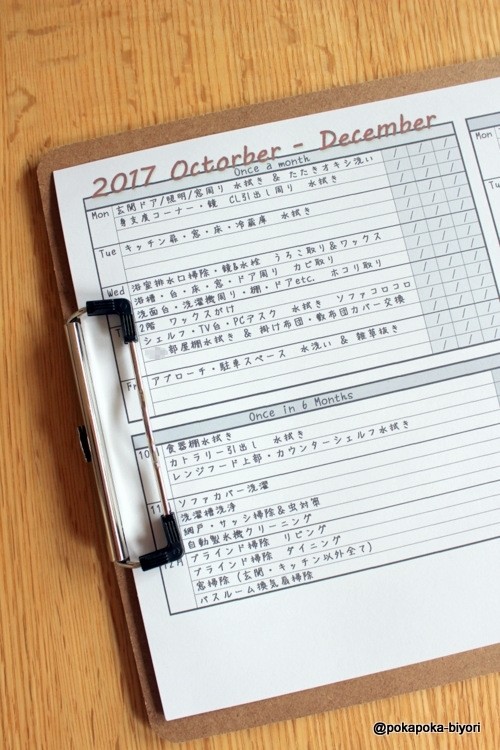 2017 Octorber - December
Once a month
Mon 玄関ドア/照明/窓周り 水拭き & たたきオキシ洗い
身支度コーナー・鏡 CL引出し周り 水拭き
Tue キッチン扉・窓・床・冷蔵庫 水拭き
Wed 浴室排水口掃除・鏡&水栓 うろこ取り&ワックス
浴槽・台・床・窓・ドア周り カビ取り
洗面台・洗濯機周り・棚・ドアetc. ホコリ取り
2階 ワックスがけ
シェルフ・TV台・PCデスク 水拭き ソファコロコロ
部屋棚水拭き & 掛け布団・敷布団カバー交換
Fri アプローチ・駐車スペース 水洗い & 雑草抜き
Once in 6 Months
食器棚水拭き
カトラリー引出し 水拭き
レンジフード上部・カウンターシェルフ水拭き
ソファカバー洗濯
洗濯槽洗浄
網戸・サッシ掃除&虫対策
自動製氷機クリーニング
ブラインド掃除 リビング
ブラインド掃除 ダイニング
窓掃除(玄関・キッチン以外全て)
バスルーム換気扇掃除
Mon
@pokapoka-biyori